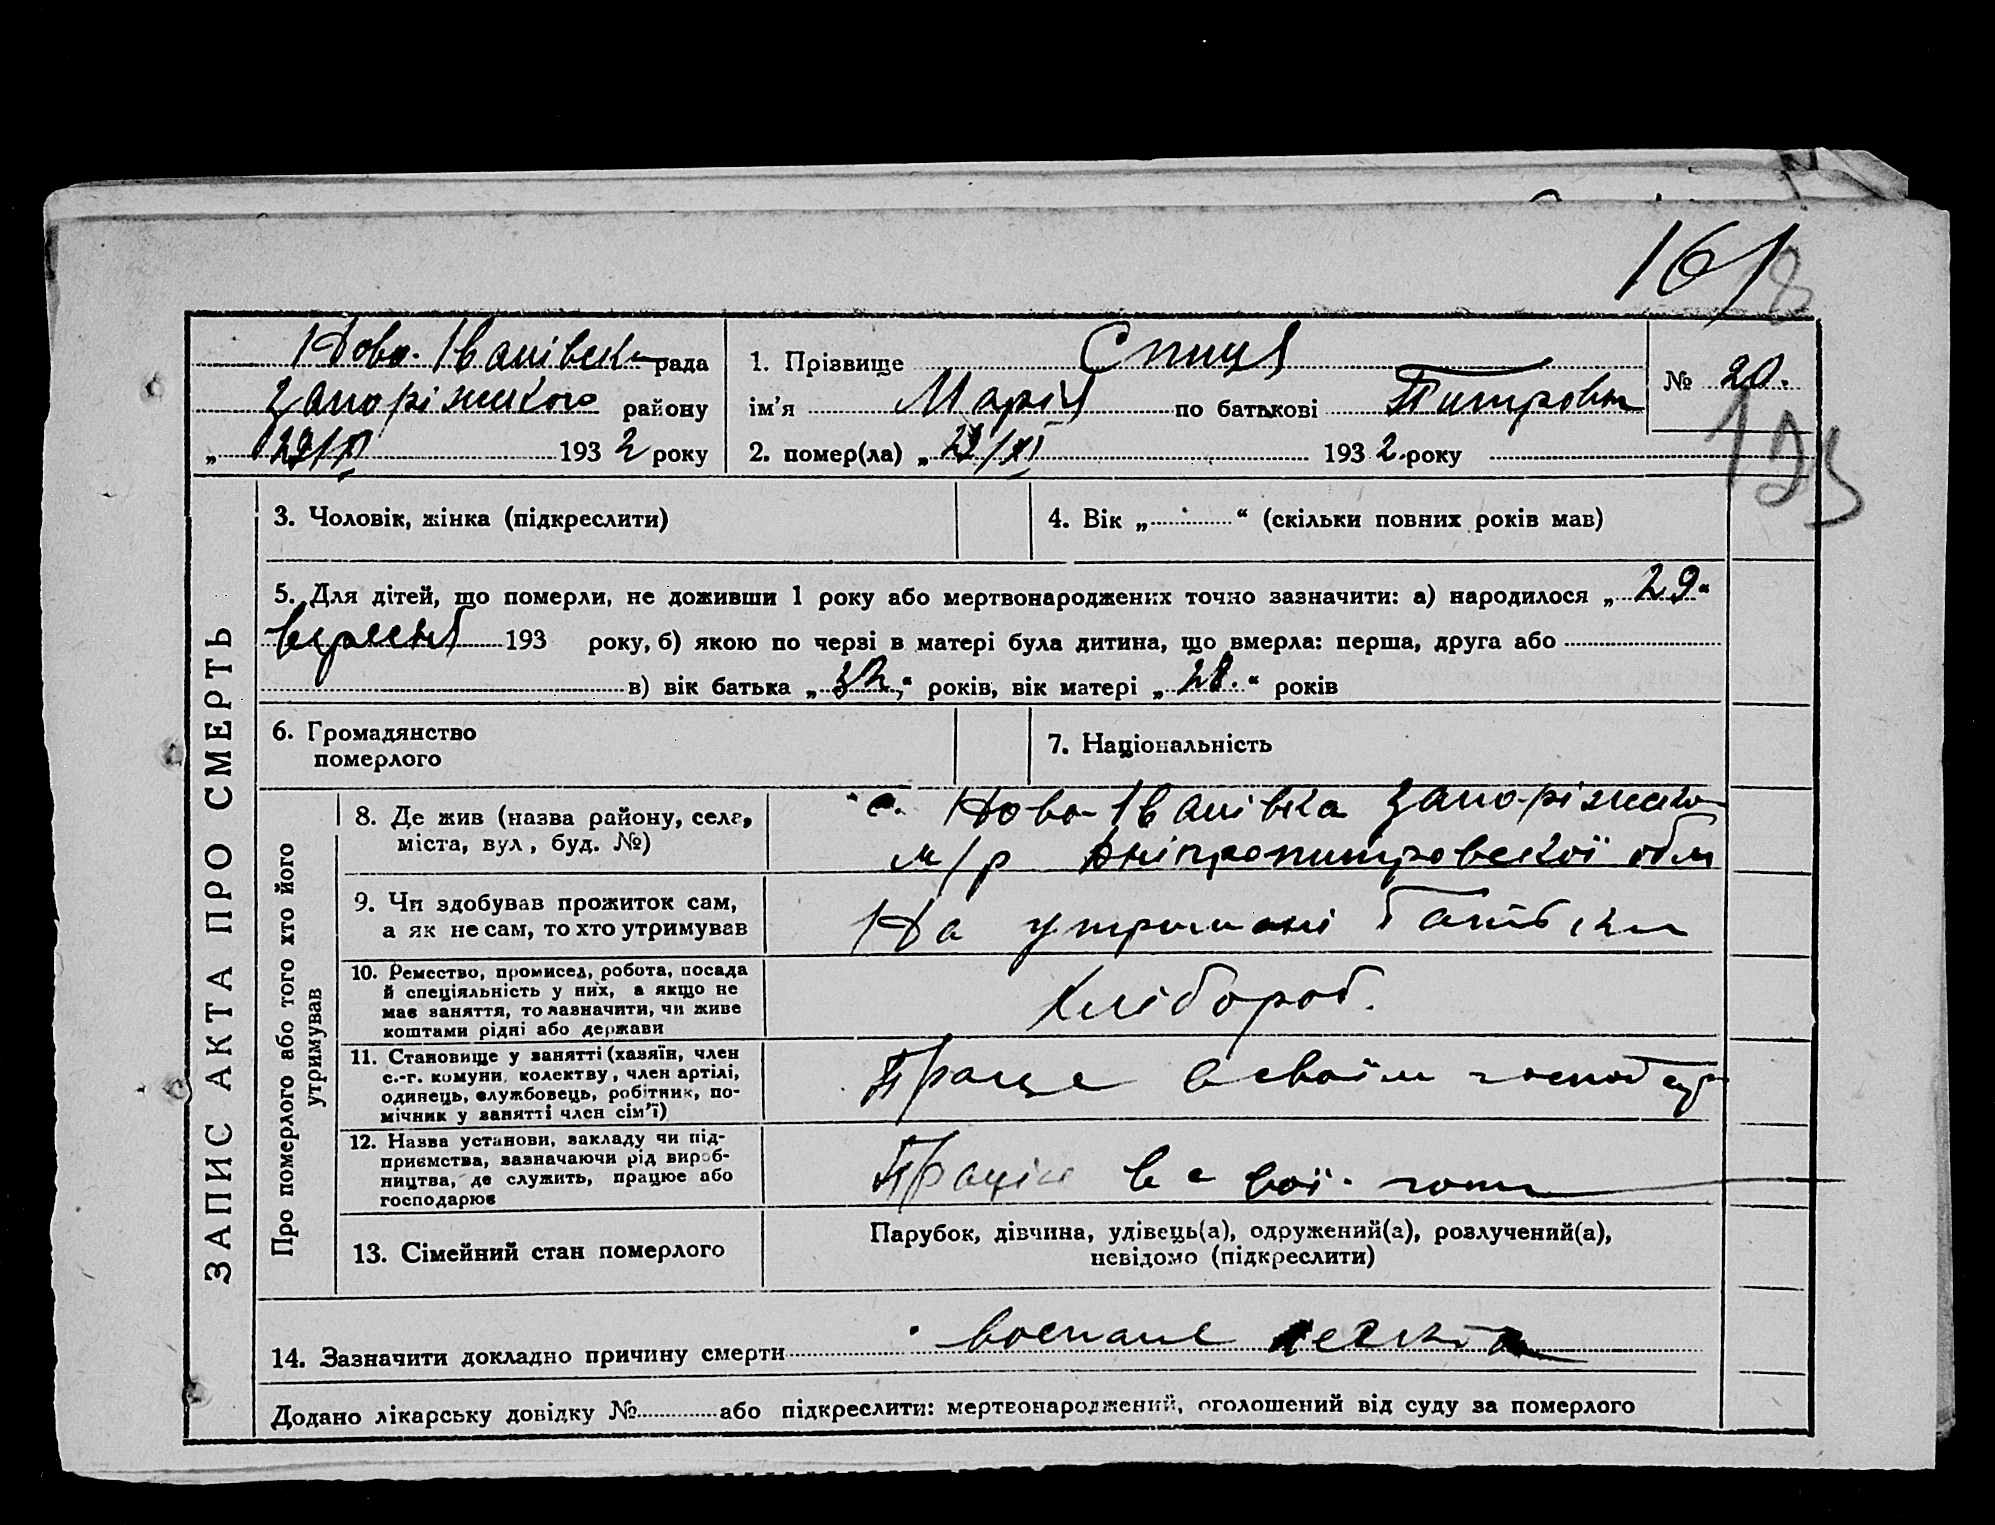 161
8
Ново-Іванівська рада
Запоріжського району
„ 22/XI 1932 року
1. Прізвище Спиця
ім’я Марія по батькові Питровна
2. помер(ла) „ 22/XI 1932 року
№ 20.
193
ЗАПИС АКТА ПРО СМЕРТЬ
3. Чоловік, жінка (підкреслити)
4. Вік „ “ (скільки повних років мав)
5. Для дітей, що померли, не доживши 1 року або мертвонароджених точно зазначити: а) народилося „ 29 “
вересня 193 року, б) якою по черзі в матері була дитина, що вмерла: перша, друга або
в) вік батька „ 32 “ років, вік матері „ 28. “ років
6. Громадянство
померлого
7. Національність
Про померлого або того хто його
утримував
8. Де жив (назва району, села,
міста, вул, буд. №)
с. Ново-Іванівка Запоріжсько
м/р Дніпропитровської обл
9. Чи здобував прожиток сам,
а як не сам, то хто утримував
На утримані батьк
10. Ремество, промисел, робота, посада
й спеціяльність у них, а якщо не
має заняття, то зазначити, чи живе
коштами рідні або держави
Хлібороб.
11. Становище у занятті (хазяїн, член
с.-г. комуни, колектву, член артілі,
одинець, службовець, робітник, по-
мічник у занятті член сім’ї)
Праце в своїм господ
12. Назва установи, закладу чи під-
приємства, зазначаючи рід вироб-
ництва, де служить, працює або
господарює
Праціє в свої. госп
13. Сімейний стан померлого
Парубок, дівчина, удівець(а), одружений(а), розлучений(а),
невідомо (підкреслити)
14. Зазначити докладно причину смерти воспале легких
Додано лікарську довідку № або підкреслити: мертвонароджений, оголошений від суду за померлого